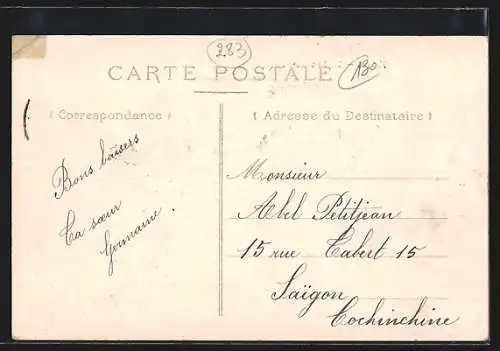 283
130
CARTE POSTALE
( Correspondance )
( Adresse du Destinataire )
Bons baisers
Ta sœur
Germaine.
Monsieur
Abel Petitjean
15 rue Cabert 15
Saïgon
Cochinchine